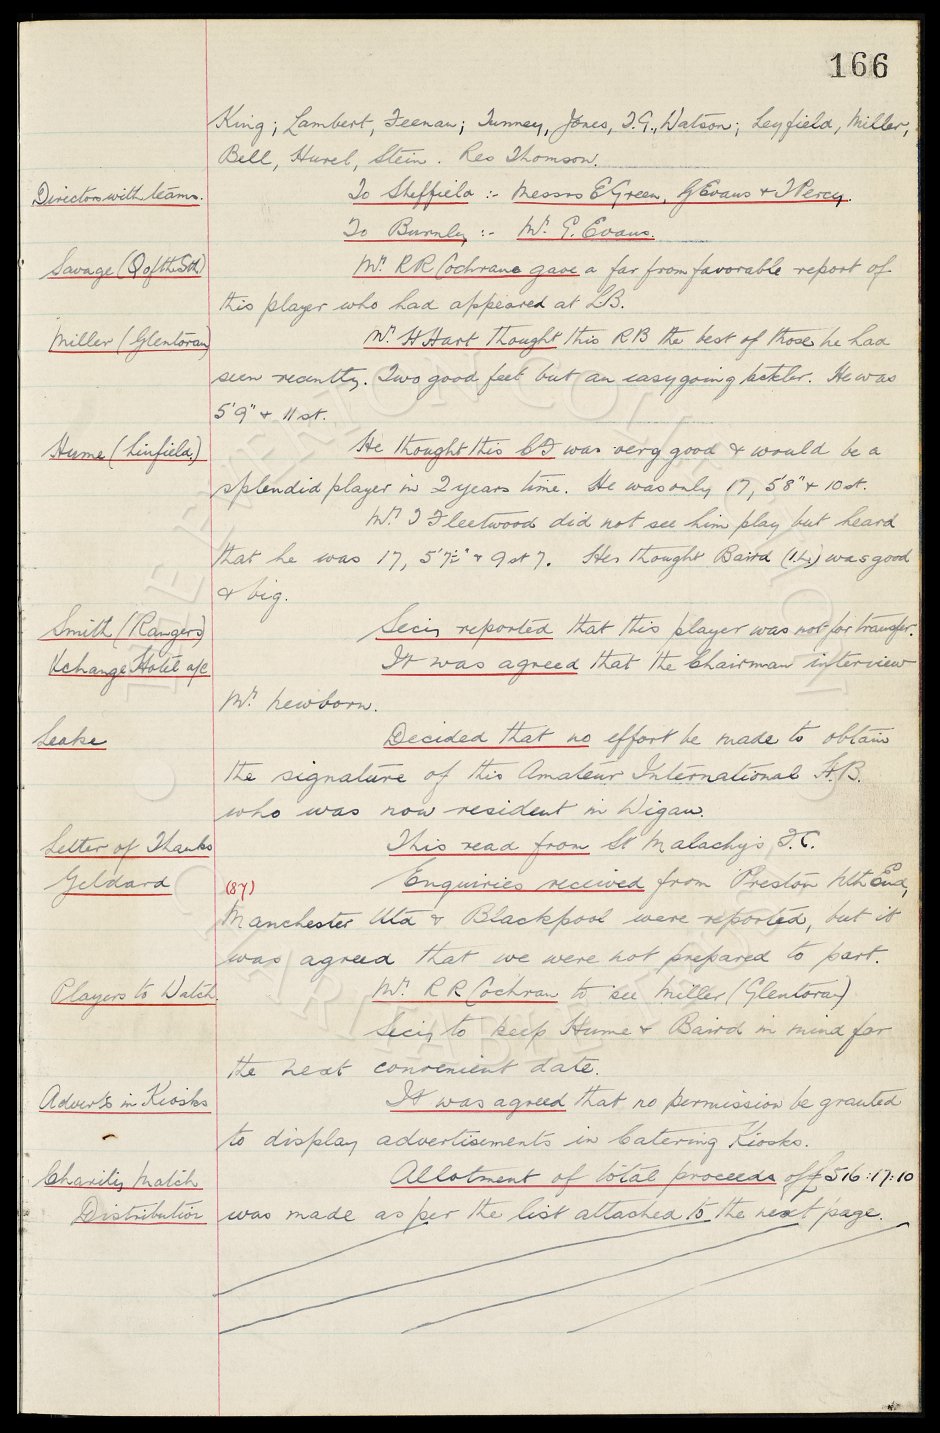 166
King; Lambert, Feenan; Tunney, Jones, T.G., Watson; Leyfield, Miller,
Bell, Hurel, Stein. Res Thomson.
Directors with teams. To Sheffield :- Messrs E Green, G Evans & T Percy.
To Burnley :- Mr. G. Evans.
Savage (Q of the Sth) Mr. R R Cochrane gave a far from favorable report of
this player who had appeared at LB.
Miller (Glentoran) Mr. H Hart thought this RB the best of those he had
seen recently. Two good feet but an easy going tackler. He was
5'9" & 11 st.
Hume (Linfield.) He thought this CF was very good & would be a
splendid player in 2 years time. He was only 17, 5'8" & 10 st.
Mr. J Fleetwood did not see him play but heard
that he was 17, 5'7½" & 9 st 7. He thought Baird (I.L.) was good
& big.
Smith (Rangers) Secy reported that this player was not for transfer.
Xchange Hotel a/c It was agreed that the Chairman interview
Mr. Newborn.
Leake Decided that no effort be made to obtain
the signature of this Amateur International H.B.
who was now resident in Wigan.
Letter of Thanks This read from St Malachy's F.C.
Geldard (87) Enquiries received from Preston Nth End,
Manchester Utd & Blackpool were reported, but it
was agreed that we were not prepared to part.
Players to Watch Mr. R R Cochran to see Miller (Glentoran)
Secy to keep Hume & Baird in mind for
the next convenient date.
Adver'ts in Kiosks It was agreed that no permission be granted
to display advertisements in Catering Kiosks.
Charity Match Allotment of total proceeds of £516:17:10
Distribution was made as per the list attached to the next page.
THE EVERTON COLLECTION
CHARITABLE TRUST